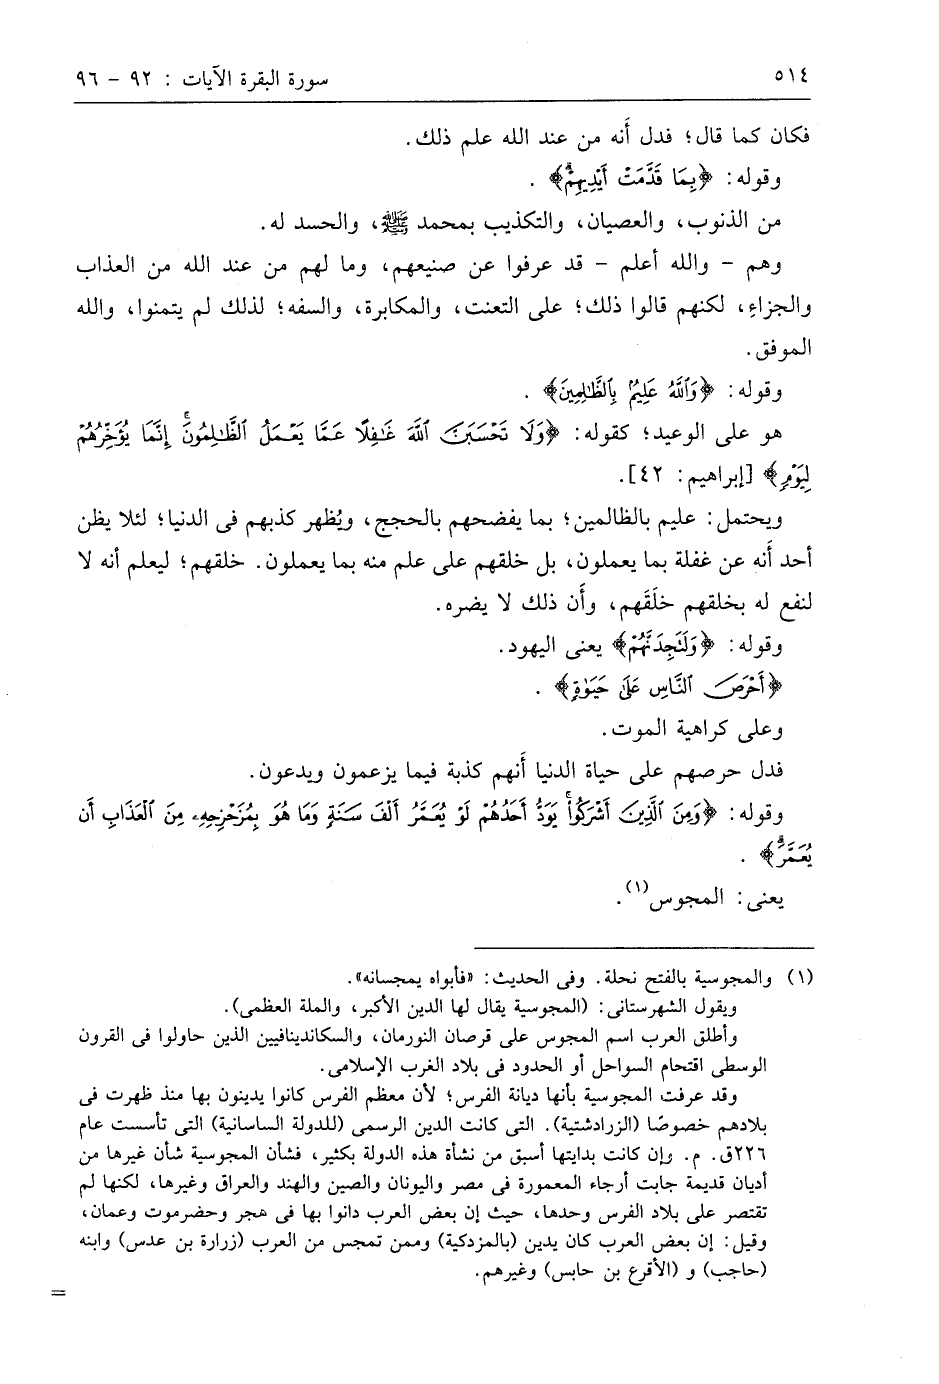 ٥١٤
سورة البقرة الآيات : ٩٢ - ٩٦
فكان كما قال؛ فدل أَنه من عند الله علم ذلك.
وقوله: ﴿بِمَا قَدَّمَتْ أَيْدِيهِمْۗ﴾ .
من الذنوب، والعصيان، والتكذيب بمحمد ﷺ، والحسد له.
وهم - والله أعلم - قد عرفوا عن صنيعهم، وما لهم من عند الله من العذاب
والجزاءِ، لكنهم قالوا ذلك؛ على التعنت، والمكابرة، والسفه؛ لذلك لم يتمنوا، والله
الموفق.
وقوله: ﴿وَٱللَّهُ عَلِيمٌۢ بِٱلظَّٰلِمِينَ﴾ .
هو على الوعيد؛ كقوله: ﴿وَلَا تَحْسَبَنَّ ٱللَّهَ غَٰفِلًا عَمَّا يَعْمَلُ ٱلظَّٰلِمُونَۚ إِنَّمَا يُؤَخِّرُهُمْ
لِيَوْمٍ﴾ [إبراهيم: ٤٢].
ويحتمل: عليم بالظالمين؛ بما يفضحهم بالحجج، ويُظهر كذبهم فى الدنيا؛ لئلا يظن
أحد أَنه عن غفلة بما يعملون، بل خلقهم على علم منه بما يعملون. خلقهم؛ ليعلم أنه لا
لنفع له بخلقهم خلَقَهم، وأَن ذلك لا يضره.
وقوله: ﴿وَلَتَجِدَنَّهُمْ﴾ يعنى اليهود.
﴿أَحْرَصَ ٱلنَّاسِ عَلَىٰ حَيَوٰةٍ﴾ .
وعلى كراهية الموت.
فدل حرصهم على حياة الدنيا أَنهم كذبة فيما يزعمون ويدعون.
وقوله: ﴿وَمِنَ ٱلَّذِينَ أَشْرَكُوا۟ۚ يَوَدُّ أَحَدُهُمْ لَوْ يُعَمَّرُ أَلْفَ سَنَةٍ وَمَا هُوَ بِمُزَحْزِحِهِۦ مِنَ ٱلْعَذَابِ أَن
يُعَمَّرَۗ﴾ .
يعنى: المجوس(١).
(١) والمجوسية بالفتح نحلة. وفى الحديث: «فأبواه يمجسانه».
ويقول الشهرستانى: (المجوسية يقال لها الدين الأكبر، والملة العظمى).
وأطلق العرب اسم المجوس على قرصان النورمان، والسكاندينافيين الذين حاولوا فى القرون
الوسطى اقتحام السواحل أو الحدود فى بلاد الغرب الإسلامى.
وقد عرفت المجوسية بأنها ديانة الفرس؛ لأن معظم الفرس كانوا يدينون بها منذ ظهرت فى
بلادهم خصوصًا (الزرادشتية). التى كانت الدين الرسمى (للدولة الساسانية) التى تأسست عام
٢٢٦ق. م. وإن كانت بدايتها أسبق من نشأة هذه الدولة بكثير، فشأن المجوسية شأن غيرها من
أديان قديمة جابت أرجاء المعمورة فى مصر واليونان والصين والهند والعراق وغيرها، لكنها لم
تقتصر على بلاد الفرس وحدها، حيث إن بعض العرب دانوا بها فى هجر وحضرموت وعمان،
وقيل: إن بعض العرب كان يدين (بالمزدكية) وممن تمجس من العرب (زرارة بن عدس) وابنه
(حاجب) و (الأقرع بن حابس) وغيرهم.
=